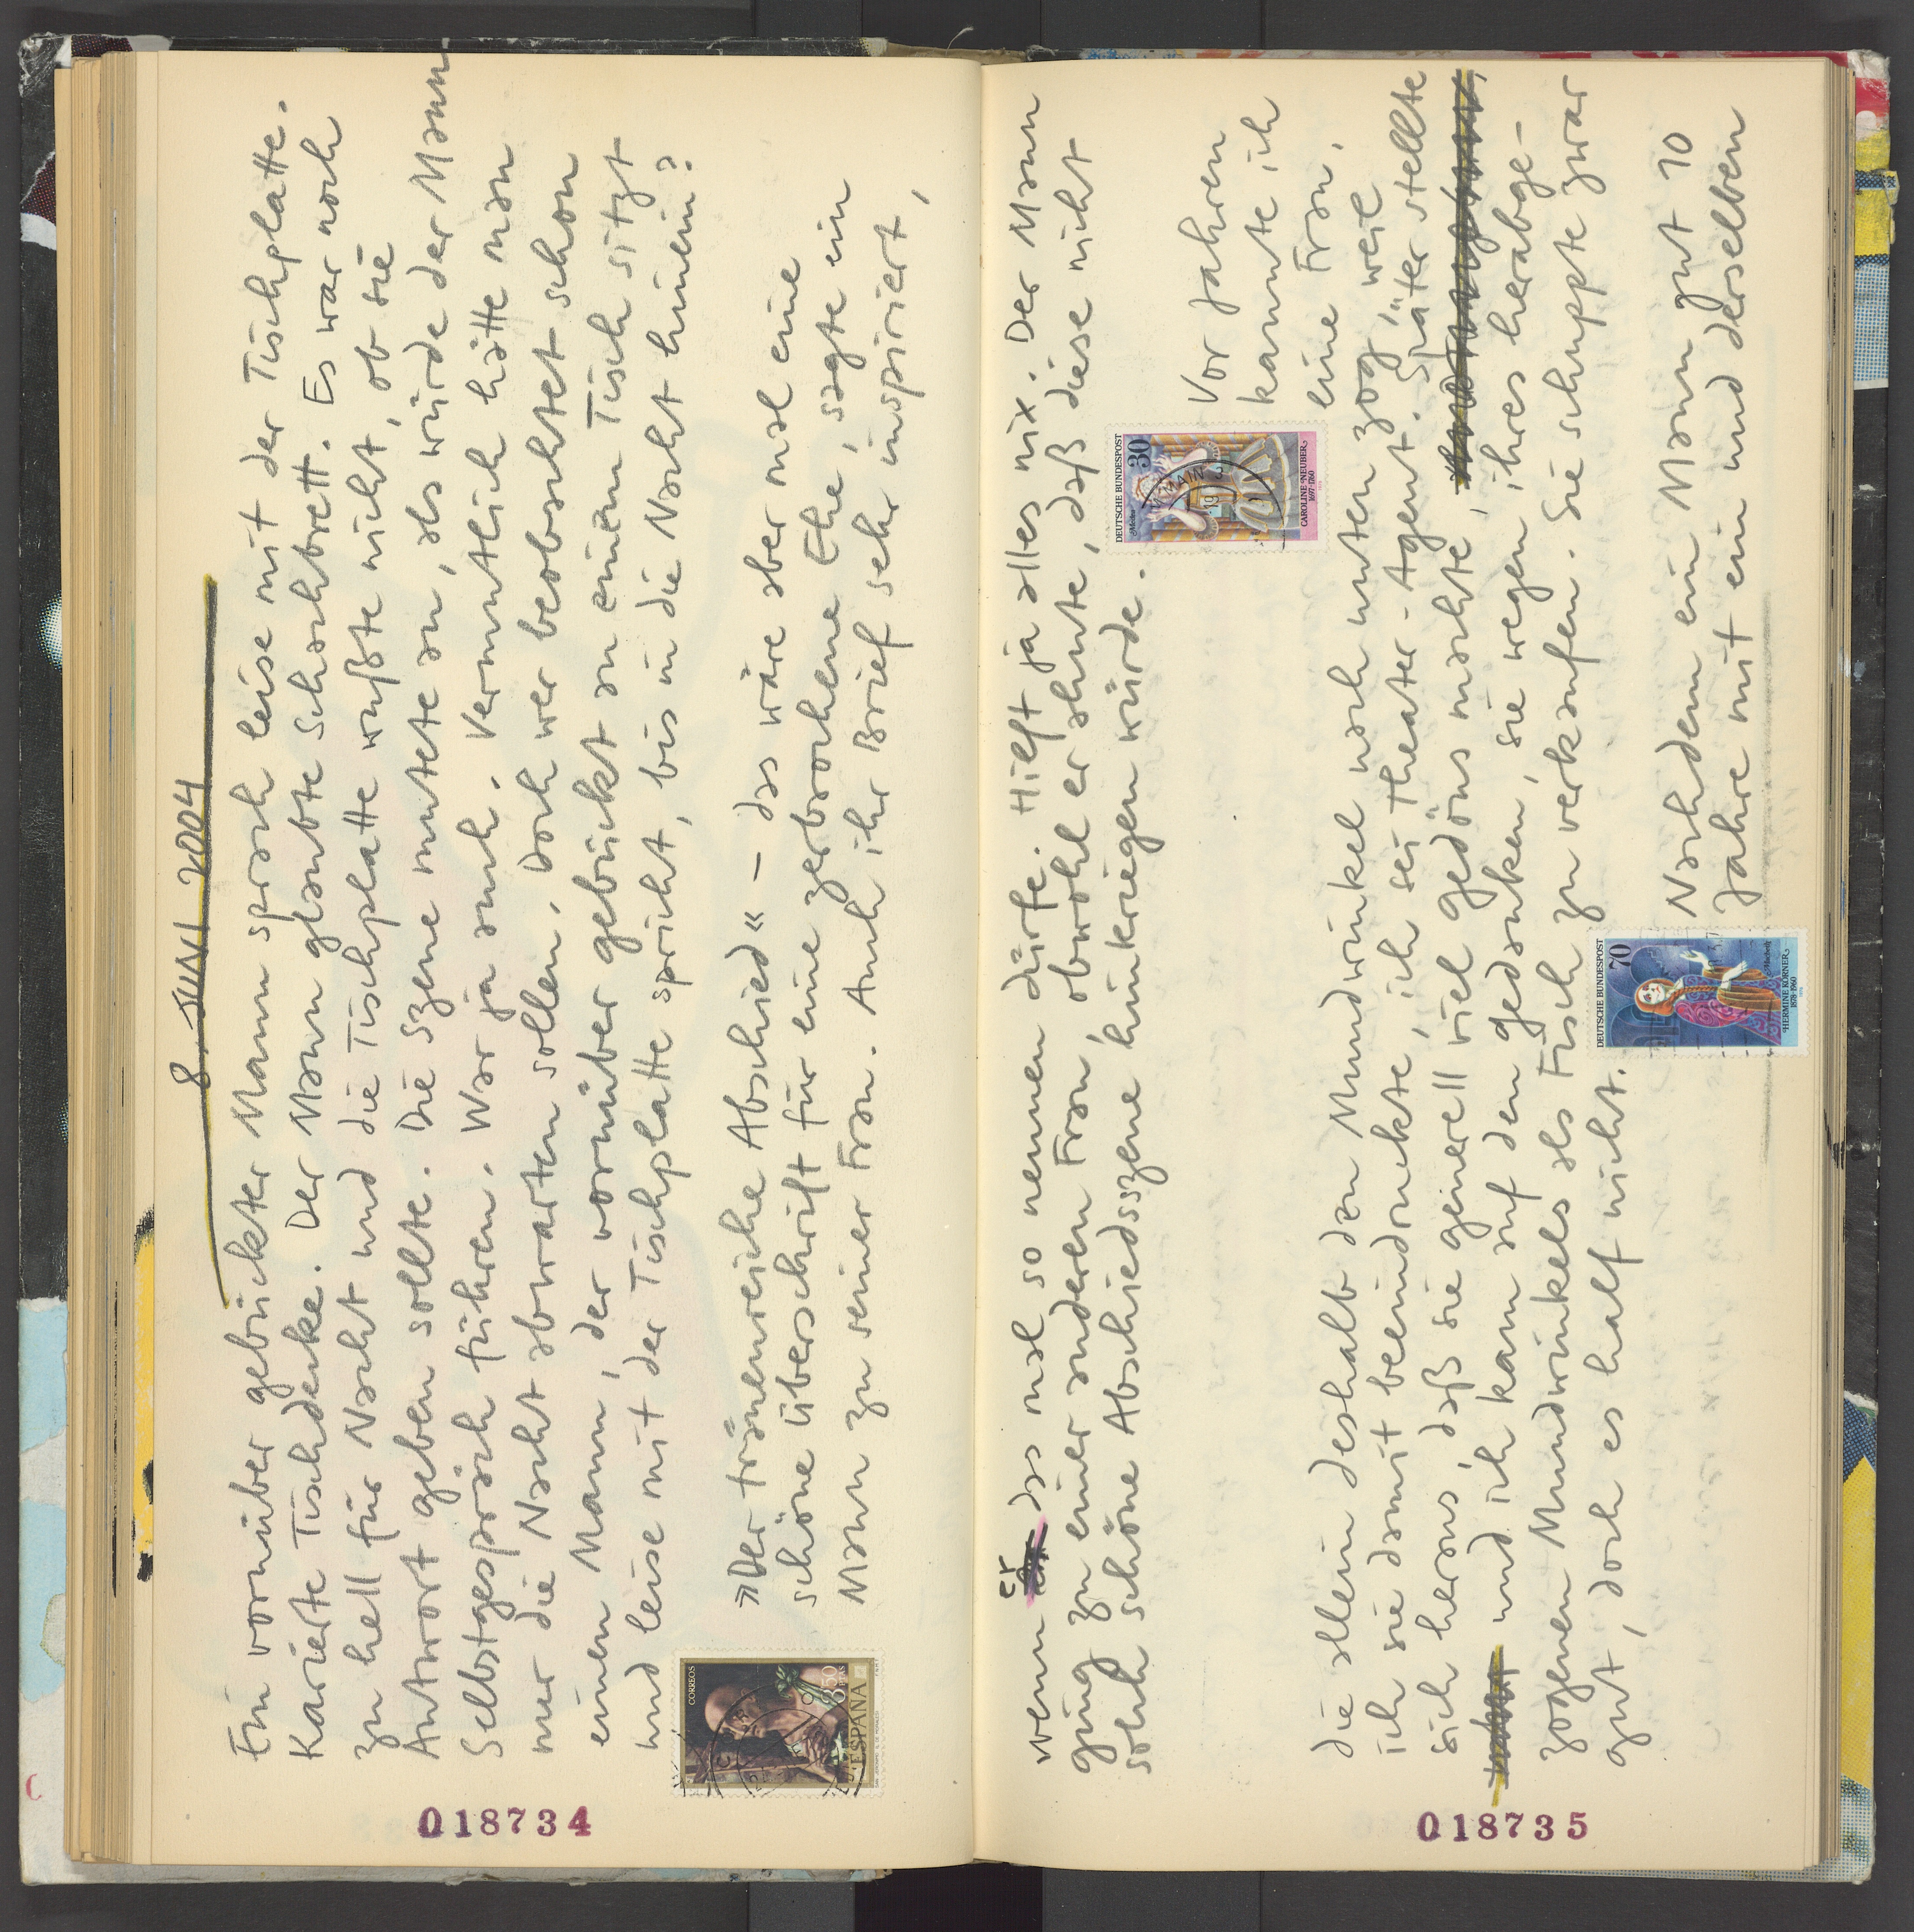 8. JUNI 2004
Ein vornüber gebückter Mann sprach leise mit der Tischplatte.
Karierte Tischdecke. Der Mann glaubte Schachbrett. Es war noch
zu hell für Nacht und die Tischplatte wußte nicht, ob sie
Antwort geben sollte. Die Szene mutete an, als würde der Mann
Selbstgespräch führen. War ja auch. Vermutlich hätte man
nur die Nacht abwarten sollen. Doch wer beobachtet schon
einen Mann, der vornüber gebückt an einem Tisch sitzt
und leise mit der Tischplatte spricht, bis in die Nacht hinein?
»Der tränenreiche Abschied« – das wäre aber mal eine
schöne Überschrift für eine zerbrochene Ehe, sagte ein
Mann zu seiner Frau. Auch ihr Brief sehr inspiriert,
CORREOS
8,50
PTAS
ESPAÑA
018734
wenn er das mal so nennen dürfe. Hilft ja alles nix. Der Mann
ging zu einer anderen Frau, obwohl er ahnte, daß diese nicht
solch schöne Abschiedsszene hinkriegen würde.
DEUTSCHE BUNDESPOST
30
CAROLINE NEUBER
1697-1760
Vor Jahren
kannte ich
eine Frau,
die allein deshalb den Mundwinkel nach unten zog, weil
ich sie damit beeindruckte, ich sei Theater-Agent. Später stellte
sich heraus, daß sie generell viel Gedöns machte,
und ich kam auf den Gedanken, sie wegen ihres herabge-
zogenen Mundwinkels als Fisch zu verkaufen. Sie schuppte zwar
gut, doch es half nicht.
DEUTSCHE BUNDESPOST
70
HERMINE KÖRNER
1878-1960
Nachdem ein Mann gut 10
Jahre mit ein und derselben
018735